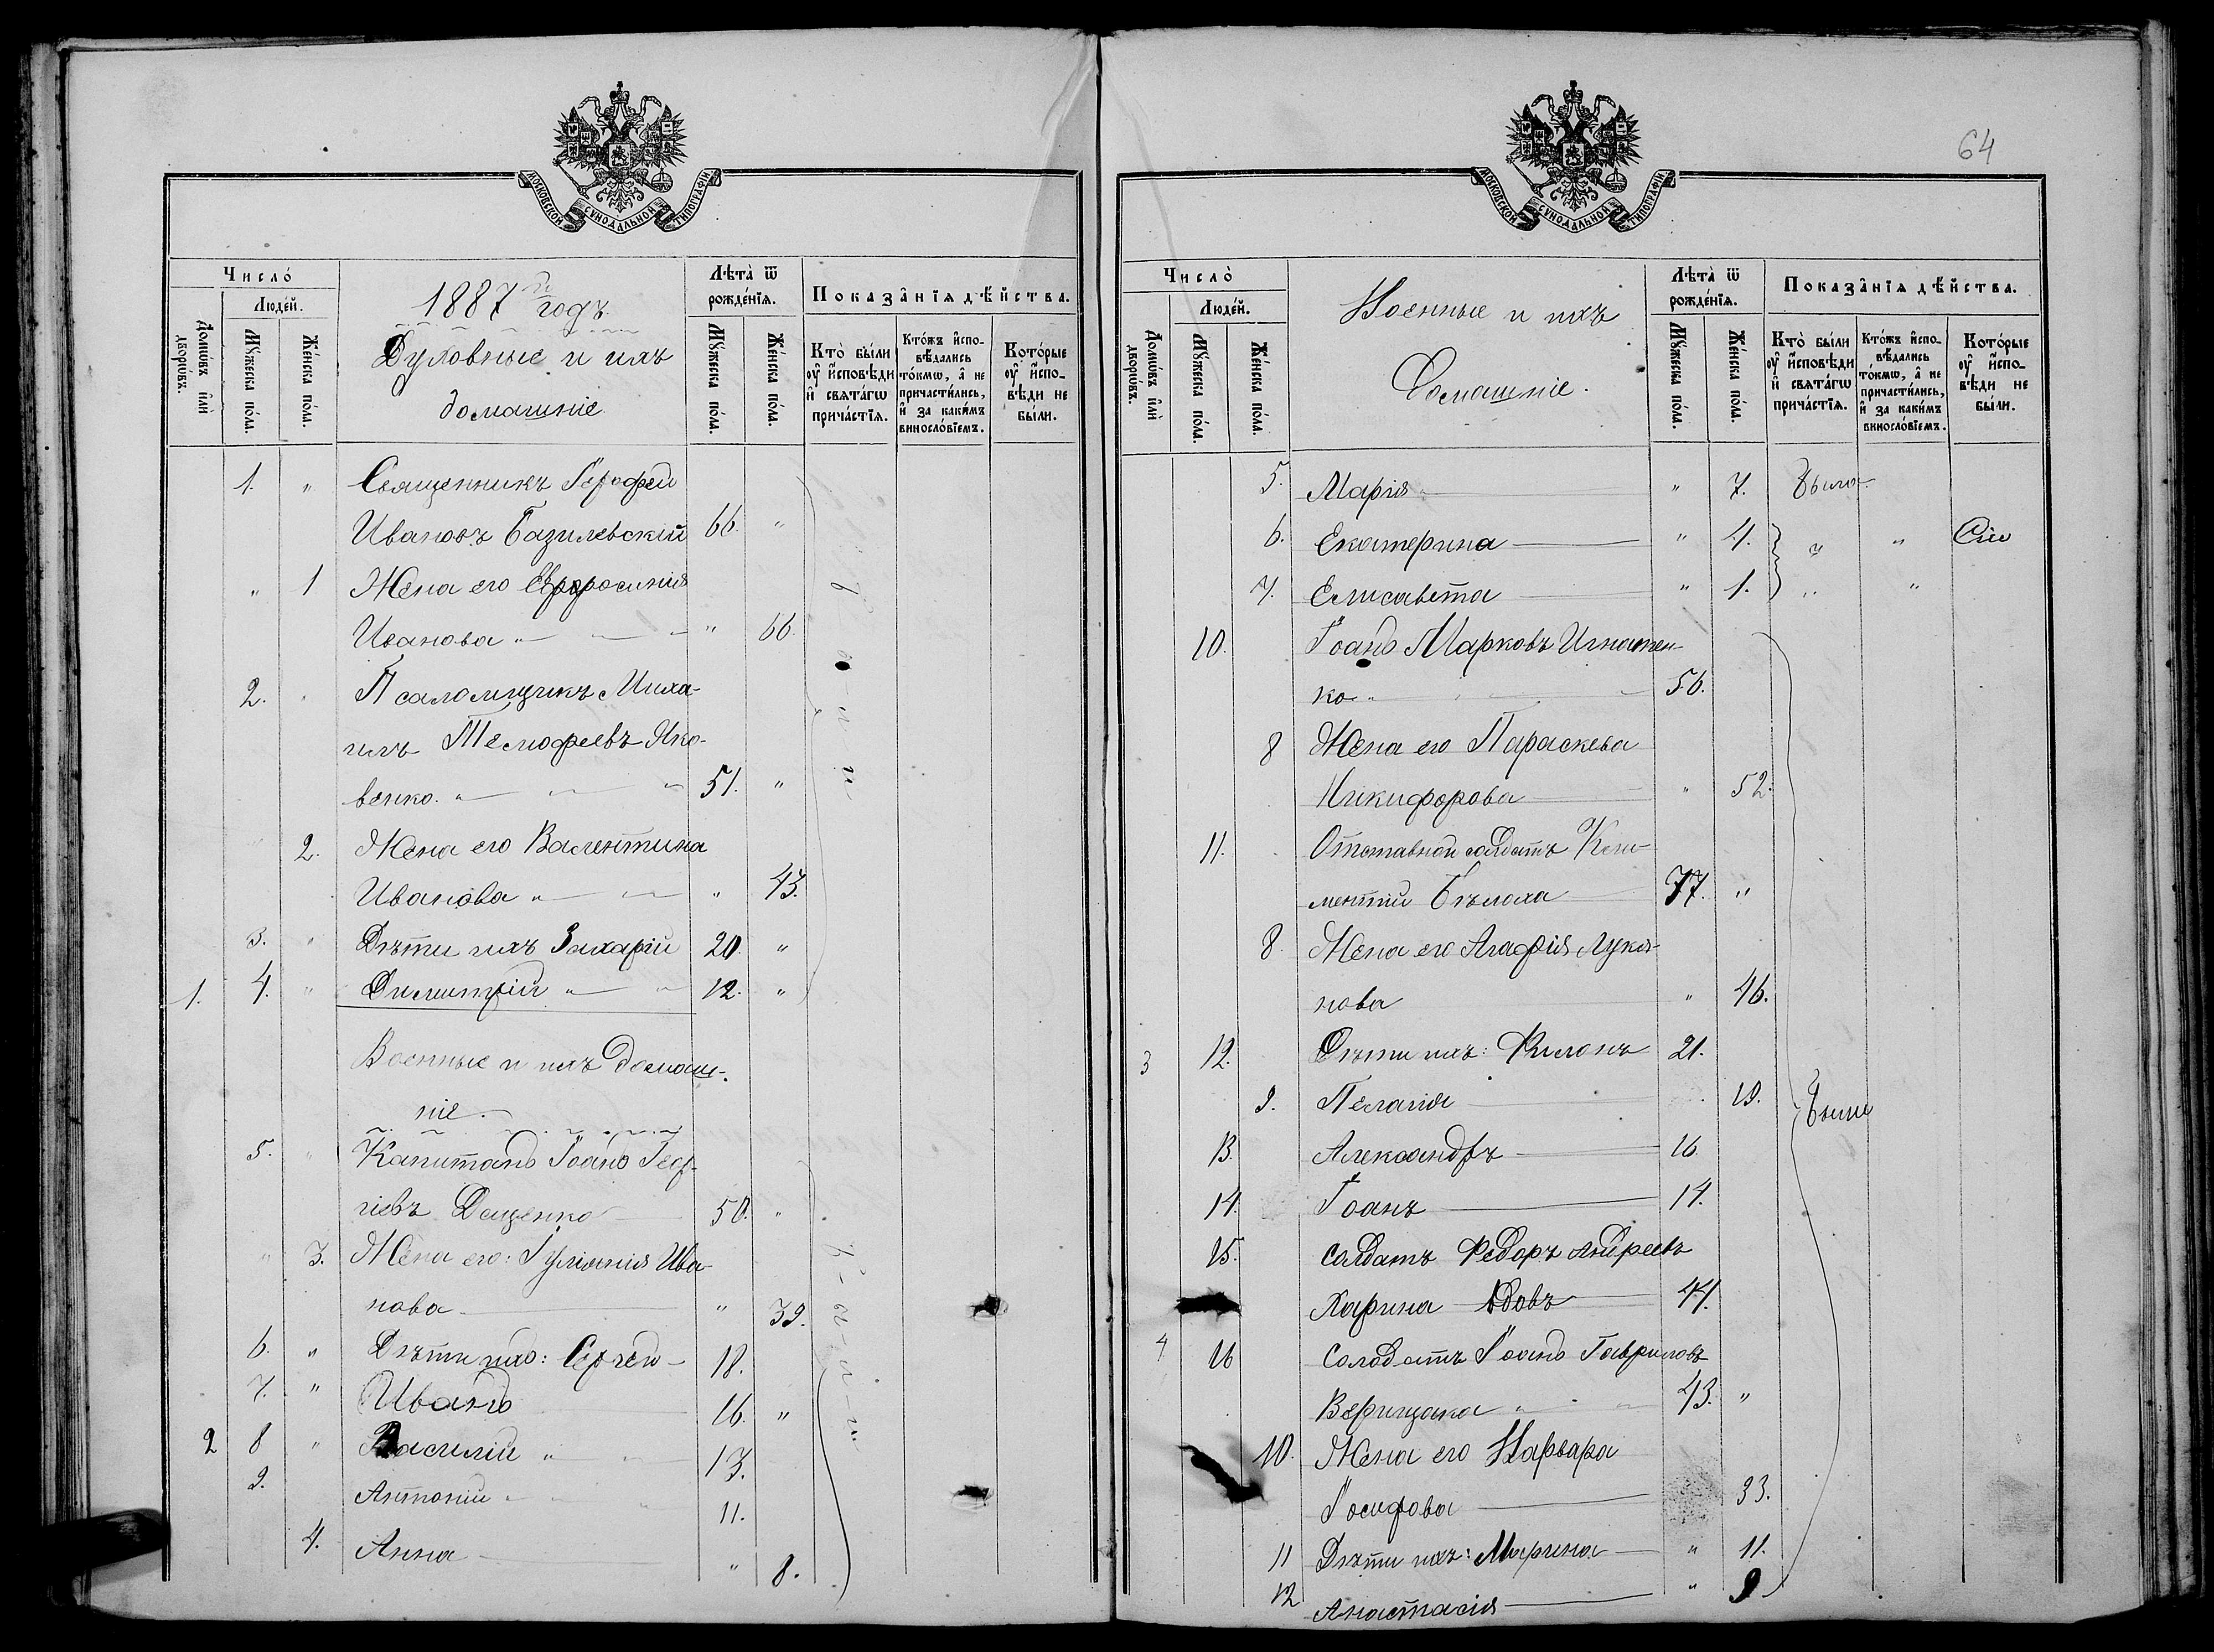 МОСКОВСКОЙ СѴНОДАЛЬНОЙ ТИПОГРАФІИ
Число̀
Люде́й.
Домѡ́въ и҆лѝ дворѡ́въ.
Мꙋ́жеска по́ла.
Же́нска по́ла.
1887 й годъ.
Духовные и ихъ
домашніе
Лѣ̑та ѿ рожде́нїѧ.
Мꙋ́жеска по́ла.
Же́нска по́ла.
Показа̑нїѧ дѣ́йства.
Ктò бы́ли ᲂу҆ и҆сповѣ́ди и҆ свѧта́гѡ прича́стїѧ.
Кто́жъ и҆сповѣ́дались то́кмѡ, а҆ не причасти́лись, и҆ за каки́мъ винослό́вїемъ.
Кото́рые ᲂу҆ и҆сповѣ́ди не бы́ли.
1. " Священникъ Іерофей
Ивановъ Базилевскій 66. "
" 1 Жена его Евфросинія
Иванова " 66.
2. Псаломщикъ Миха-
илъ Тимофеевъ Яко-
венко. 51. "
2. Жена его Валентина
Иванова " 43.
3. " Дѣти ихъ Захарій 20 "
1. 4. " Димитрій 12. "
были
Военные и ихъ домаш-
ніе.
5. Капитанъ Іоанъ Геор-
гіевъ Дещенко 50. "
" 3. Жена его: Іуліянія Ива-
нова " 39.
6. " Дѣти ихъ: Сергей 18.
7. " Иванъ 16. "
2 8 " Василій 13.
9. Антоній 11.
4. Анна " 8.
были
64
МОСКОВСКОЙ СѴНОДАЛЬНОЙ ТИПОГРАФІИ
Число̀
Люде́й.
Домѡ́въ и҆лѝ дворѡ́въ.
Мꙋ́жеска по́ла.
Же́нска по́ла.
Военные и ихъ
Домашніе.
Лѣ̑та ѿ рожде́нїѧ.
Мꙋ́жеска по́ла.
Же́нска по́ла.
Показа̑нїѧ дѣ́йства.
Ктò бы́ли ᲂу҆ и҆сповѣ́ди и҆ свѧта́гѡ прича́стїѧ.
Кто́жъ и҆сповѣ́дались то́кмѡ, а҆ не причасти́лись, и҆ за каки́мъ винослό́вїемъ.
Кото́рые ᲂу҆ и҆сповѣ́ди не бы́ли.
5. Марія " 7. была
6. Екатерина " 4. " "
7. Елисавета " 1. " "
10. Іоанъ Марковъ Игнатен-
ко 56.
8 Жена его Параскева
Никифорова " 52.
11. Отставной солдатъ Кли-
ментій Бѣлоха 77. "
8. Жена его Агафія Лукья-
нова " 46.
3 12. Дѣти ихъ: Филонъ 21.
9. Пелагія 19.
были
13. Александръ 16
14. Іоанъ 14.
15. Солдатъ Федоръ Андреевъ
Харина вдовъ 44.
4 16 Солдатъ Іоанъ Гавриловъ
Верищака 43. "
10. Жена его Варвара
Іосифова 33.
11 Дѣти ихъ: Марина " 11.
12 Анастасія " 9